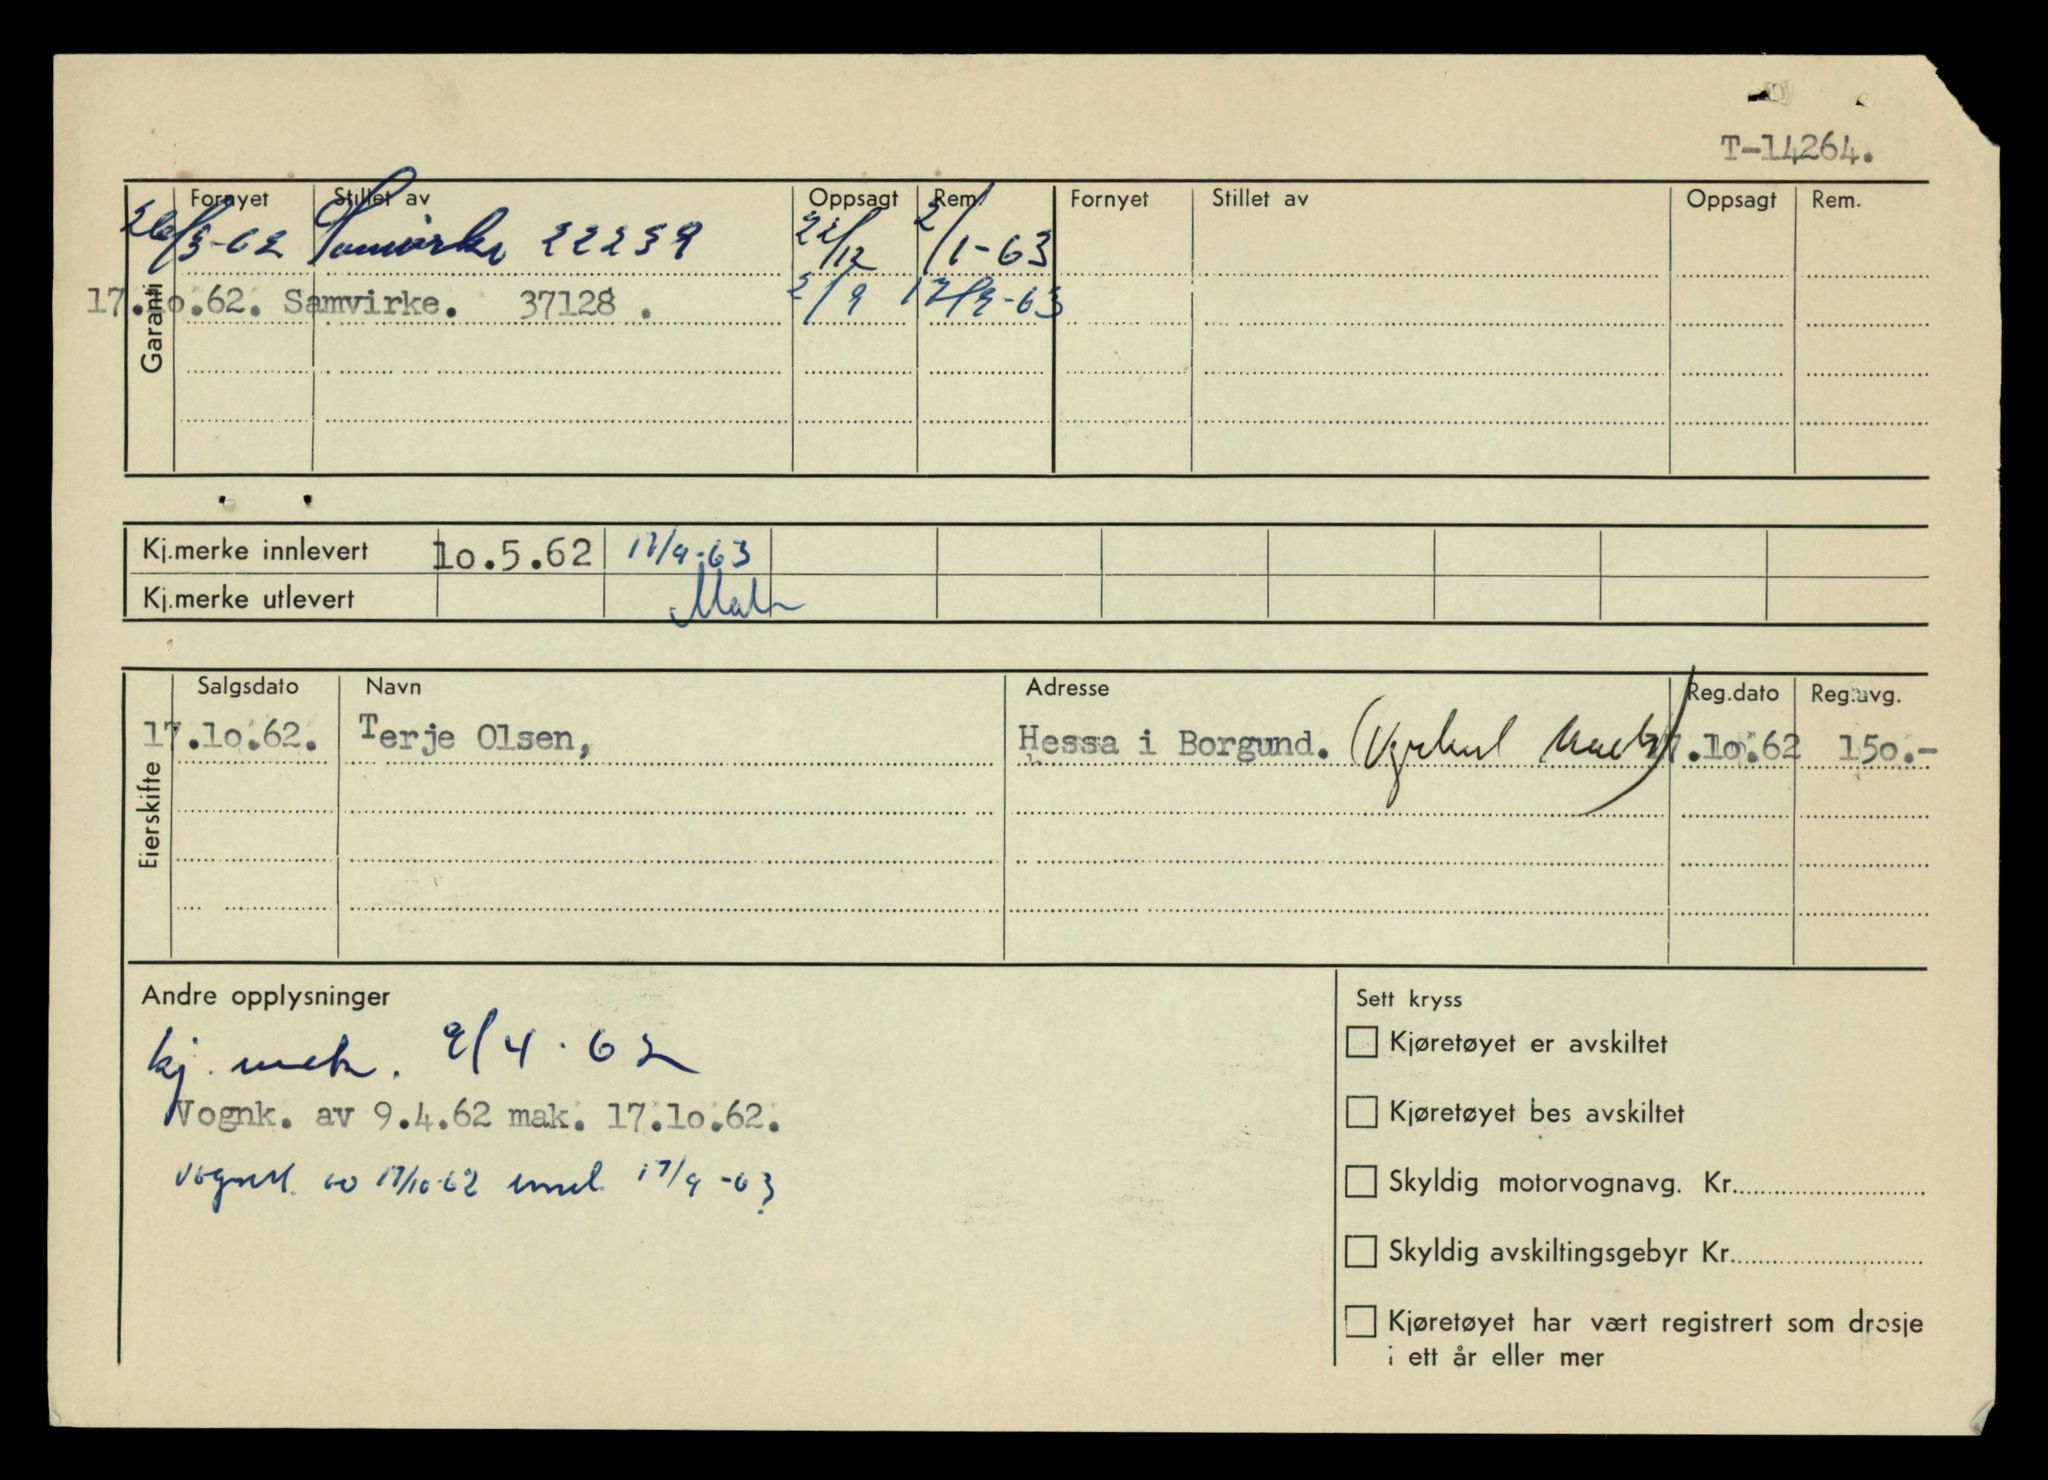 T-14264.
Fornyet Stillet av Oppsagt Rem. Fornyet Stillet av Oppsagt Rem.
26/3-62 Samvirke 22239 22/12 2/1-63
17.10.62. Samvirke. 37128 . 2/9 17/9-63
Garanti
Kj.merke innlevert 10.5.62 17/9-63
Kj.merke utlevert Mak
Salgsdato Navn Adresse Reg.dato Reg.avg.
17.10.62. Terje Olsen, Hessa i Borgund. 17.10.62 150.-
Eierskifte
Andre opplysninger
kj. 9/4.62
Vognk. av 9.4.62 mak. 17.10.62.
17/10-62 17/9-63
Sett kryss
Kjøretøyet er avskiltet
Kjøretøyet bes avskiltet
Skyldig motorvognavg. Kr.
Skyldig avskiltingsgebyr Kr.
Kjøretøyet har vært registrert som drosje
i ett år eller mer